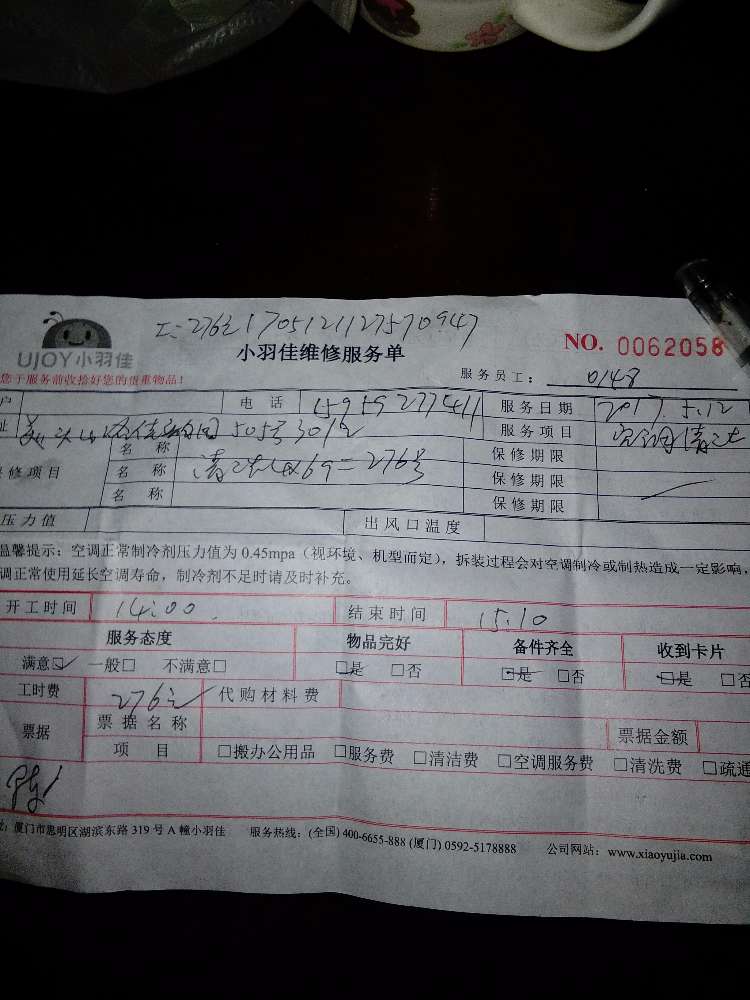 工:276元 1705121127570947
UJOY小羽佳
小羽佳维修服务单
NO. 0062058
您于服务前收拾好您的贵重物品！
服务员工： 0148
户 电话 服务日期 2017.5.12
址 505号301 服务项目 空调清洗
名称 保修期限
修项目 名称 清洗4X69=276元 保修期限
名称 保修期限
压力值 出风口温度
温馨提示：空调正常制冷剂压力值为 0.45mpa（视环境、机型而定），拆装过程会对空调制冷或制热造成一定影响，
调正常使用延长空调寿命，制冷剂不足时请及时补充。
开工时间 14:00 结束时间 15:10
服务态度 物品完好 备件齐全 收到卡片
满意☑ 一般□ 不满意□ □是 □否 □是 □否 □是 □否
工时费 276元 代购材料费
票据 票据名称 票据金额
项目 □搬办公用品 □服务费 □清洁费 □空调服务费 □清洗费 □疏通
址：厦门市思明区湖滨东路 319 号 A 幢小羽佳 服务热线：(全国) 400-6655-888 (厦门) 0592-5178888 公司网站：www.xiaoyujia.com